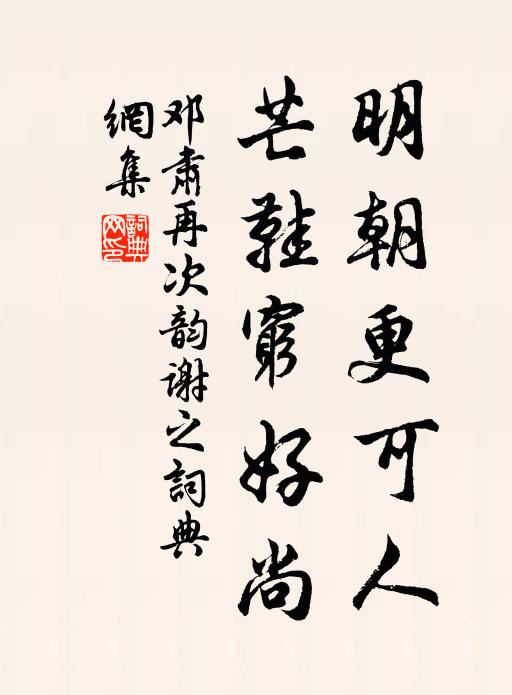 明朝更可人
芒鞋窮好尚
邓肅再次韵谢之詞典
網集
詞典
网印